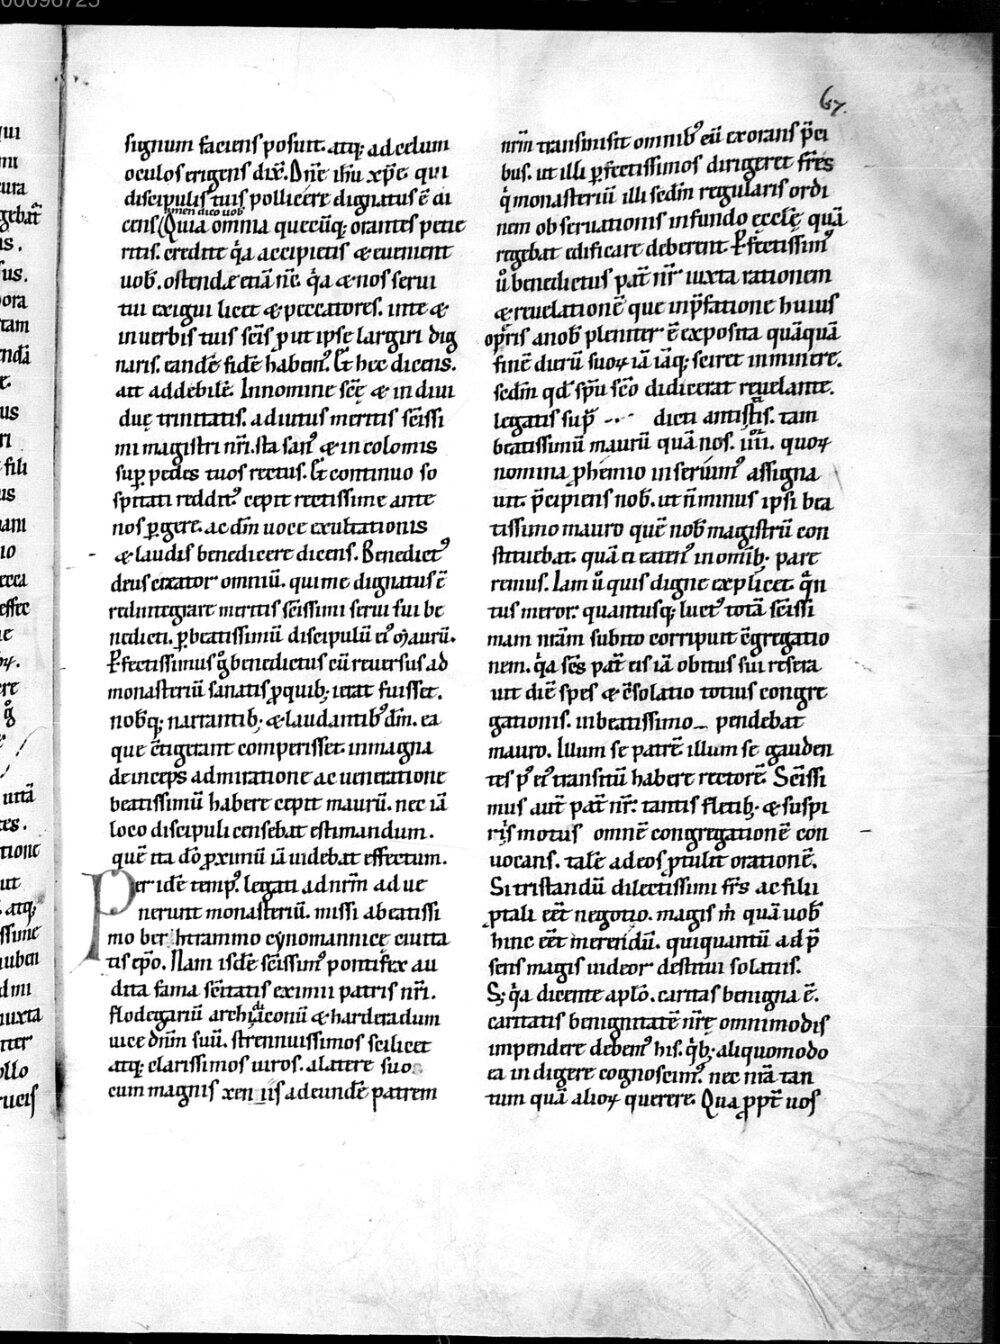 67.
signum faciens posuit. atq; ad celum
oculos erigens dix̄. Dn̄e ih̄u xp̄e qui
discipulis tuis pollicere dignatus ē di
cens
amen dico uob̄
Quia omnia quecūq; orantes petie
ritis. credite q̄a accipietis & euenient
uob̄. ostende etiā nc̄. q̄a & nos serui
tui exigui licet & peccatores. in te &
in uerbis tuis sc̄is put ipse largiri dig
naris. eandē fidē habem᷒. Et hec dicens.
ait ad debilē. In nomine sc̄ę & indiui
duę trinitatis. adiutus meritis sc̄issi
mi magistri nr̄i. sta san᷒ & incolomis
sup pedes tuos rectus. Et continuo so
spitati reddit᷒ cepit rectissime ante
nos pgere. ac dm̄ uoce exultationis
& laudis benedicere dicens. Benedict᷒
deus creator omniū. qui me dignatus ē
redintegrare meritis sc̄issimi serui sui be
nedicti. p beatissimū discipulū ei᷒ Maurū.
Pfectissimus g̊ benedictus cū reuersus ad
monasteriū sanatis pquib; ierat fuisset.
nob̄q; narrantib; & laudantib᷒ dm̄. ea
que c̄tigerant comperisset. in magna
deinceps admiratione ac ueneratione
beatissimū habere cepit maurū. nec iā
loco discipuli censebat estimandum.
quē ita dō pximū iā uidebat effectum.
Per idē temp᷒ legati ad nr̄m adue
nerunt monasteriū. missi a beatissi
mo berihtrammo cynomannicę ciuita
tis ep̄o. Nam isdē sc̄issim᷒ pontifex au
dita fama sc̄itatis eximii patris nr̄i.
flodegariū archidiaconū & harderadum
uice dn̄m suū. strennuissimos scilicet
atq; clarissimos uiros. a latere suo
cum magnis xeniis adeundē patrem
nr̄m transmisit omnib᷒ eū exorans p̄ci
bus. ut illi pfectissimos dirigeret fr̄es
q̄ monasteriū illi sedm̄ regularis ordi
nem obseruationis in fundo ęcclę quā
regebat edificare deberent. Pfectissim᷒
ů benedictus pat̄ nr̄ iuxta rationem
& reuelationē que in pfatione huius
opris a nob̄ pleniter ē exposita quāquā
finē dierū suoꝝ iā iāq; sciret inminere.
sedm̄ qd̄ sp̄u sc̄o didicerat reuelante.
legatis sup̄ dicti antistitis. tam
beatissimū maurū quā nos. iiii. quoꝝ
nomina phemio inseruim᷒ assigna
uit. p̄cipiens nob̄. ut n̄ minus ipsi bea
tissimo mauro quē nob̄ magistrū con
stituebat. quā ei eaten᷒ in omīb; pare
remus. Iam ů quis digne explicet. q̄n
tus meror. quantusq; luct᷒ totā sc̄issi
mam nr̄am subito corripuit c̄gregatio
nem. q̄a sc̄s pat̄ eis iā obitus sui resera
uit diē spes & c̄solatio totius congre
gationis. in beatissimo pendebat
mauro. Illum se patrē illum se gauden
tes p᷒ ei᷒ transitū habere rectorē. Sc̄issi
mus aut̄ pat̄ nr̄. tantis fletib; & suspi
riis motus omnē congregationē con
uocans. talē ad eos ptulit orationē.
Si tristandū dilectissimi fr̄s ac filii
p tali eēt negotio. magis m̄ quā uob̄
hinc eēt merendū. qui quantū ad p̄
sens magis uideor destitui solatiis.
S; q̄a dicente aplō. caritas benigna ē.
caritatis benignitatē nr̄ę omnimodis
impendere debem᷒ his. q̄b; aliquomodo
ea indigere cognoscim᷒. nec nr̄a tan
tum quā alioꝝ querere. Qua ppt̄ uos